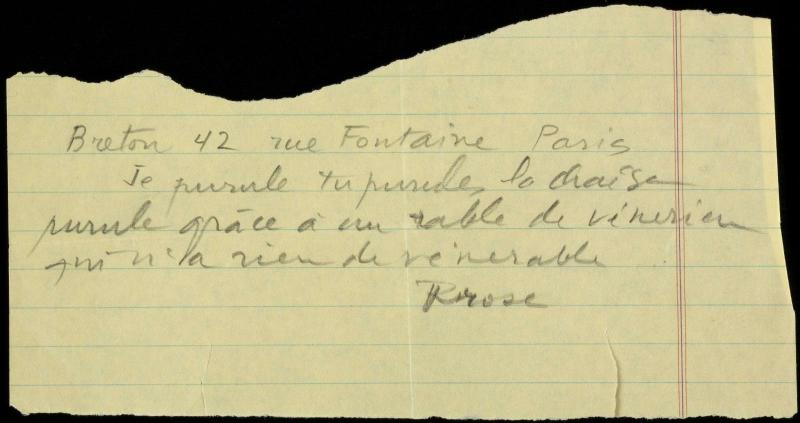 Breton 42 rue Fontaine Paris
Je purule tu purules la chaise
purule grâce à un rable de vénérien
qui n'a rien de vénérable
Rrose